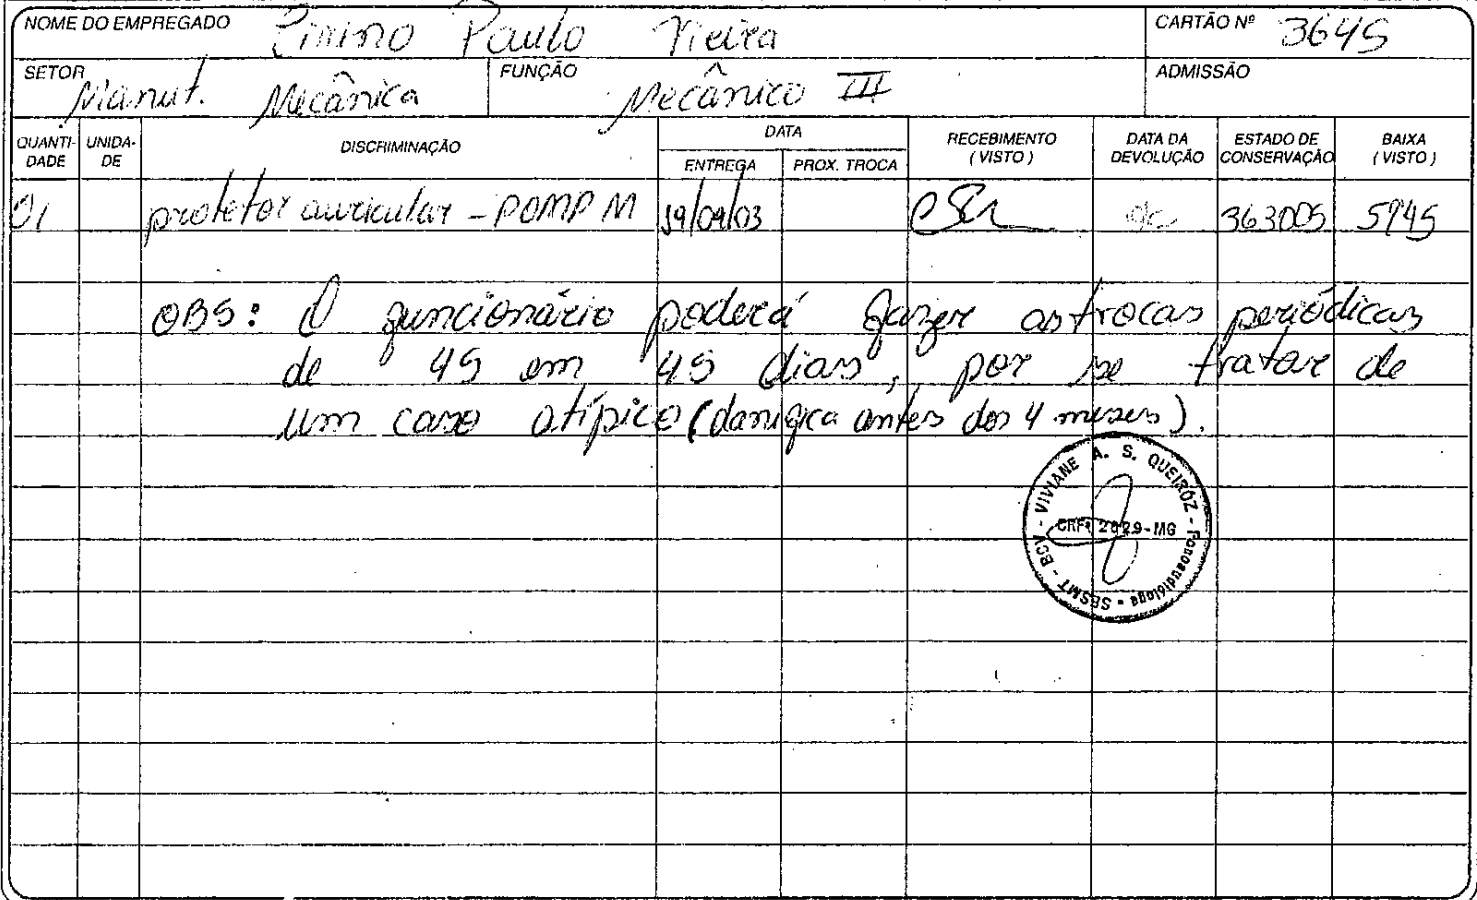 NOME DO EMPREGADO Cirino Paulo Vieira CARTÃO Nº 3645
SETOR Manut. Mecânica FUNÇÃO Mecânico III ADMISSÃO
QUANTI-DADE UNIDA-DE DISCRIMINAÇÃO DATA RECEBIMENTO (VISTO) DATA DA DEVOLUÇÃO ESTADO DE CONSERVAÇÃO BAIXA (VISTO)
ENTREGA PROX. TROCA
01 protetor auricular - POMP M 19/09/03 363005 5745
OBS: O funcionário poderá fazer as trocas periódicas
de 45 em 45 dias, por se tratar de
um caso atípico (danifica antes dos 4 meses).
VIVIANE A. S. QUEIRÓZ - Fonoaudióloga • SESMT - BCV -
CRFª 2029-MG